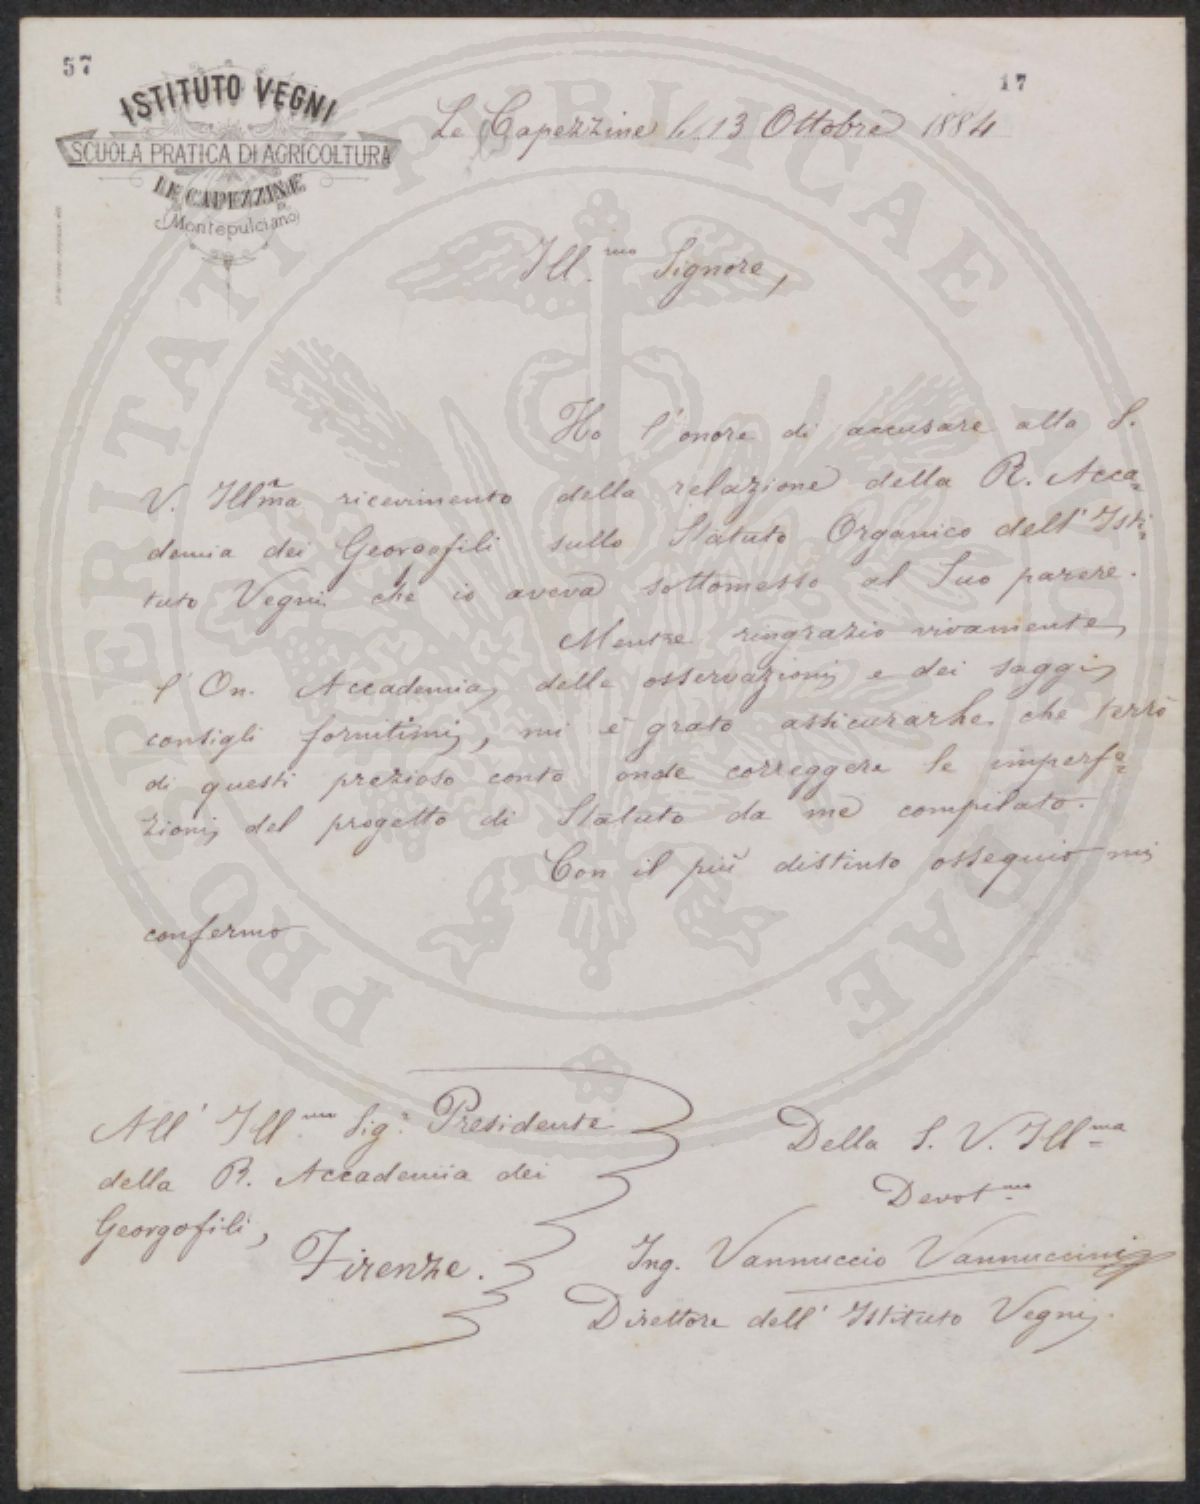 57
17
ISTITUTO VEGNI
SCUOLA PRATICA DI AGRICOLTURA
LE CAPEZZINE
(Montepulciano)
Le Capezzine li 13 Ottobre 1884
Ill.mo Signore,
Ho l'onore di accusare alla S.
V. Ill.ma ricevimento della relazione della R. Acca=
demia dei Georgofili sullo Statuto Organico dell'Isti=
tuto Vegni che io aveva sottomesso al Suo parere.
Mentre ringrazio vivamente
l'On. Accademia delle osservazioni e dei saggi
consigli fornitimi, mi è grato assicurarle che terrò
di questi prezioso conto onde correggere le imperfe=
zioni del progetto di Statuto da me compilato.
Con il più distinto ossequio mi
confermo
All'Ill.mo Sig.r Presidente
della R. Accademia dei
Georgofili,
Firenze.
Della S. V. Ill.ma
Devot.mo
Ing. Vannuccio Vannuccini
Direttore dell'Istituto Vegni.
PROSPERITATI PUBLICAE AUGENDAE